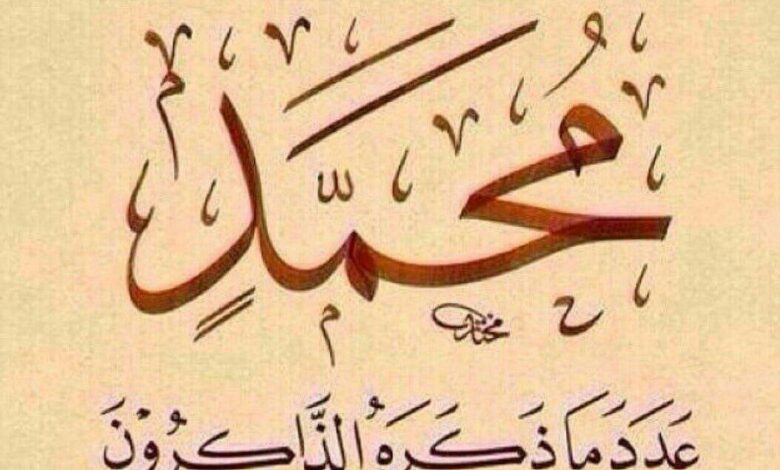 مُحَمَّدٍ
عَدَدَ مَا ذَكَرَهُ الذَّاكِرُوْنَ